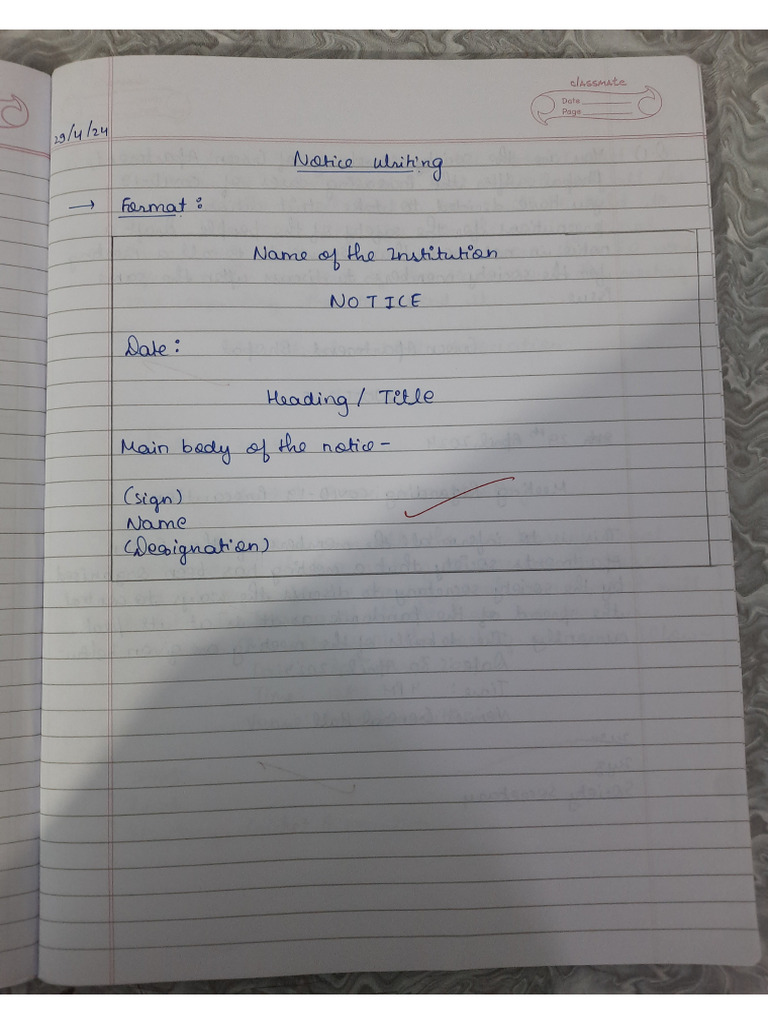 classmate
Date
Page
29/4/24
Notice Writing
→ Format :
Name of the Institution
NOTICE
Date :
Heading / Title
Main body of the notice -
(Sign)
Name
(Designation)